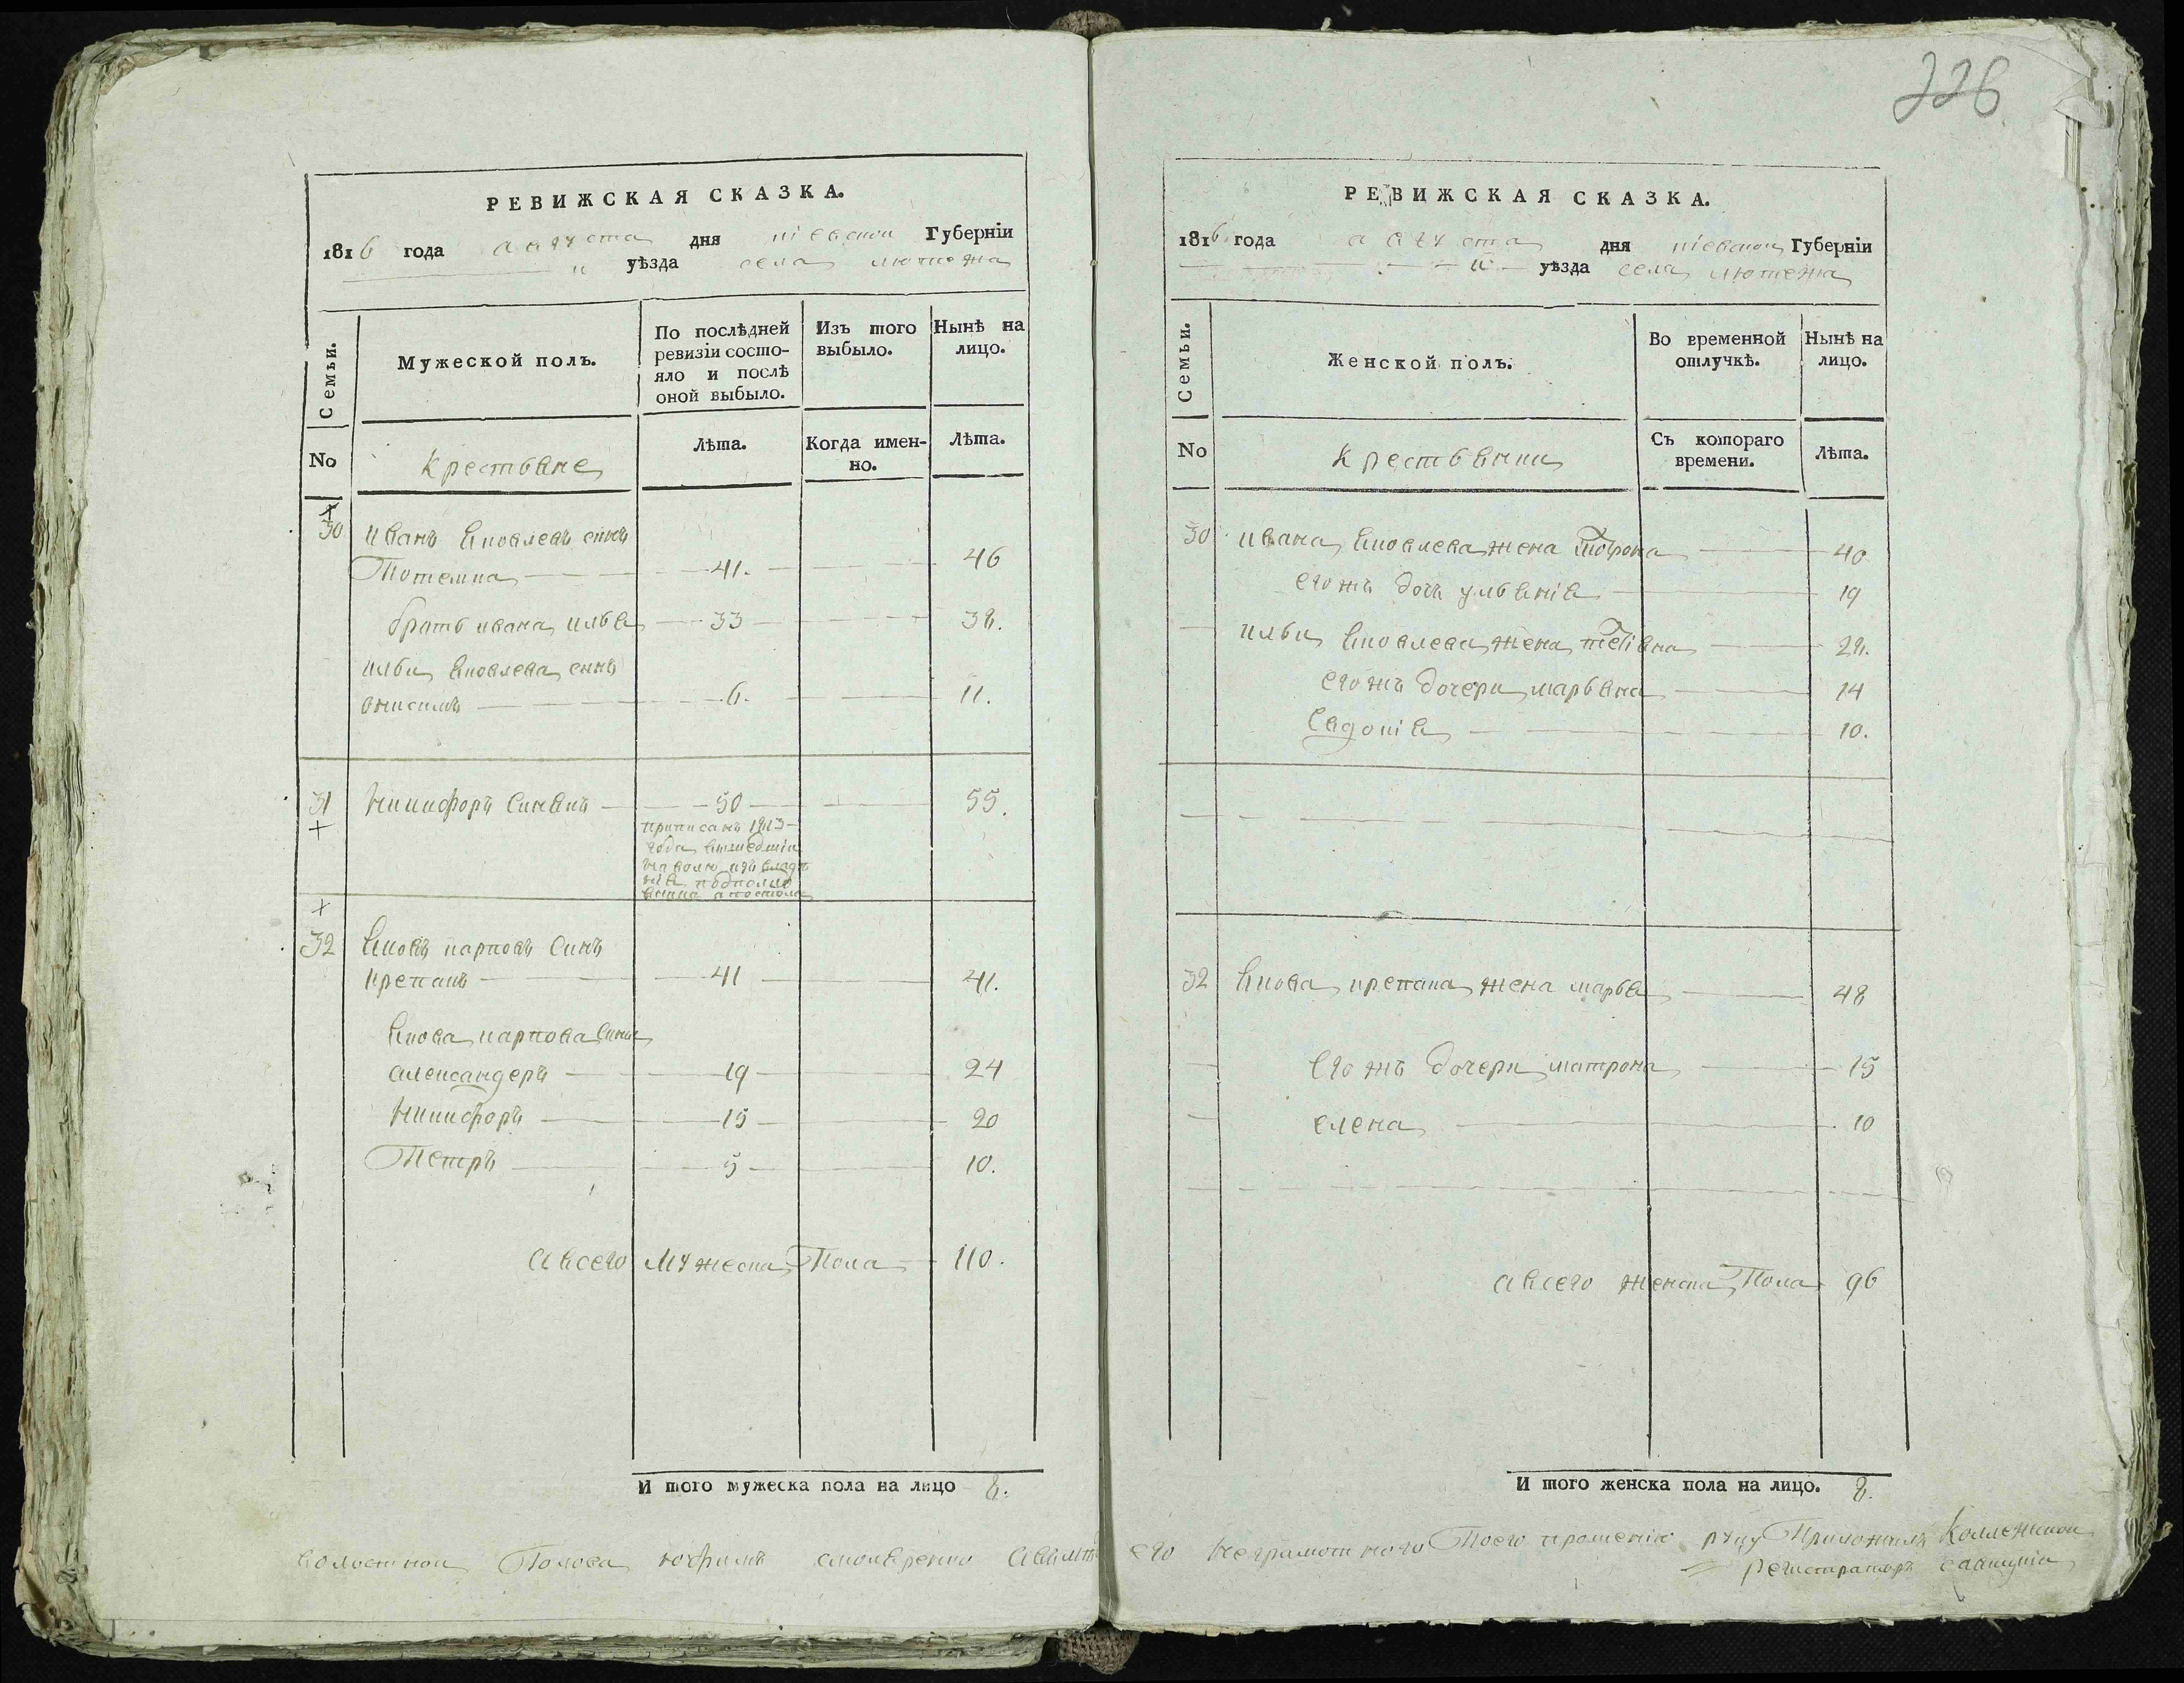 226
РЕВИЖСКАЯ СКАЗКА.
1816 года августа дня киевской Губерніи
уѣзда села лютежа
Семьи.
Мужеской полъ.
По послѣдней ревизіи состояло и послѣ оной выбыло.
Изъ того выбыло.
Нынѣ на лицо.
No
крестьяне
Лѣта.
Когда именно.
Лѣта.
30 иванъ яковлевъ синъ
Потемка 41. 46
братъ ивана илья 33 38.
ильи яковлева синъ
онисимъ 6. 11.
31 никифоръ синякъ 50 55.
приписанъ 1813
года
на волю изъ владѣ
нія подполко
вника апостола
32 яковъ карповъ синъ
крепакъ 41 41.
якова карпова сини
александеръ 19 24
никифоръ 15 20
Петръ 5 10.
а всего мужеска Пола 110.
И того мужеска пола на лицо 8.
волостной Голова юфимъ
РЕВИЖСКАЯ СКАЗКА.
1816 года августа дня киевской Губерніи
уѣзда села лютежа
Семьи.
Женской полъ.
Во временной отлучкѣ.
Нынѣ на лицо.
No
крестьянки
Съ котораго времени.
Лѣта.
30 ивана яковлева жена 40
его жъ дочь ульянія 19
ильи яковлева жена тетіяна 28.
его жъ дочери марьяна 14
евдокія 10.
32 якова крепака жена марья 48
его жъ дочери матрона 15
елена 10
а всего женска Пола 96
И того женска пола на лицо. 8.
его неграмотного Поего прошенію руку Приложилъ Коллежской
Регистраторъ